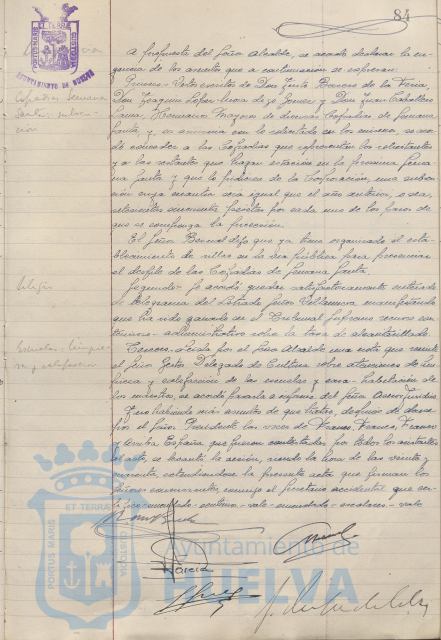 84
PORTUS MARIS ET TERRAE CUSTODIA
AYUNTAMIENTO DE HUELVA
A propuesta del Señor Alcalde, se acordó declarar la ur-
gencia de los asuntos que a continuación se expresan:
Primero - Vistos escritos de Don Justo Borrero de la Feria,
Don Joaquín López Gómez y Don Juan Caballero
Hermanos Mayores de diversas Cofradías de Semana
Santa, y en armonía con lo solicitado en los mismos, se acor-
dó conceder a las Cofradías que representan los solicitantes
y a las restantes que hagan estación en la próxima Sema-
na Santa y que lo pidieren de la Corporación, una subven-
ción cuya cuantía será igual que el año anterior, o sea,
setecientas cincuenta pesetas por cada uno de los pasos de
que se componga la procesión.
El Señor Bernal dijo que ya tiene organizado el esta-
blecimiento de sillas en la vía pública para presenciar
el desfile de las Cofradías de Semana Santa.
Cofradías Semana
Santa, subven-
ción
Segundo - Se acordó quedar satisfactoriamente enterado
de telegrama del Letrado Señor Villanueva manifestando
que ha sido ganado en el Tribunal Supremo recurso con-
tencioso-administrativo sobre la tasa de alcantarillado.
Litigio
Tercero - Leída por el Señor Alcalde una nota que remite
el Señor Gestor Delegado de Cultura sobre atenciones de lim-
pieza y calefacción de las escuelas y casa-habitación de
los maestros, se acordó pasarla a informe del Señor Asesor Jurídico.
Escuelas - limpie-
za y calefacción
Y no habiendo más asuntos de que tratar, después de darse
por el Señor Presidente las voces de Franco, Franco, Franco
y Arriba España que fueron contestadas por todos los asistentes
al acto, se levantó la sesión, siendo la hora de las veinte y
cuarenta, extendiéndose la presente acta que firman los
señores concurrentes, conmigo el Secretario accidental que cer-
tifico
García
PORTUS MARIS ET TERRAE CUSTODIA
Ayuntamiento de
HUELVA